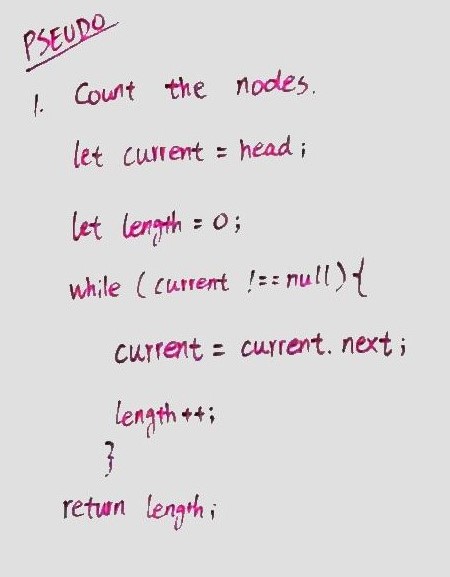 PSEUDO
1. Count the nodes.
let current = head;
let length = 0;
while (current !== null) {
current = current.next;
length++;
}
return length;